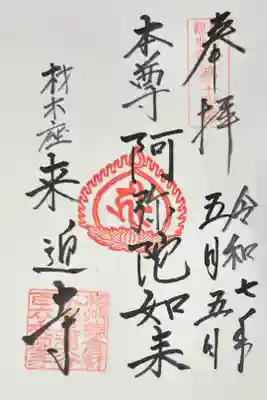 奉拝
令和七年
五月五日
本尊 阿弥陀如来
材木座 来迎寺